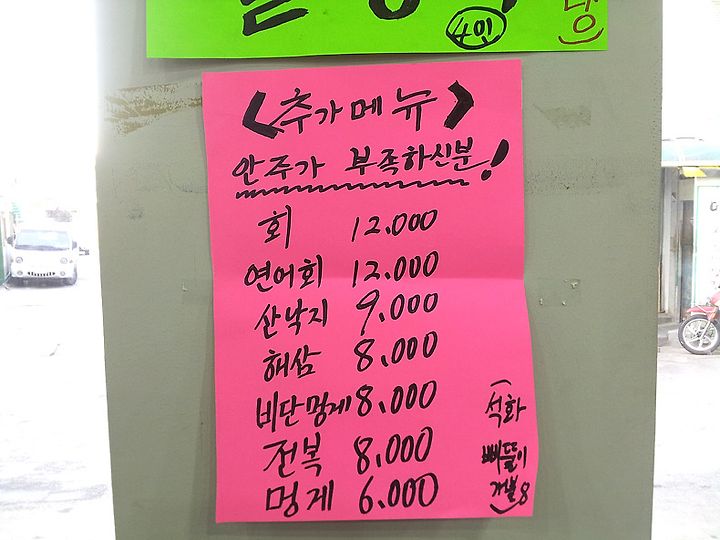 4인
<추가메뉴>
안주가 부족하신분!
회 12.000
연어회 12.000
산낙지 9.000
해삼 8.000
비단멍게 8.000
전복 8.000
멍게 6.000
(석화
삐뚤이
개불 8)